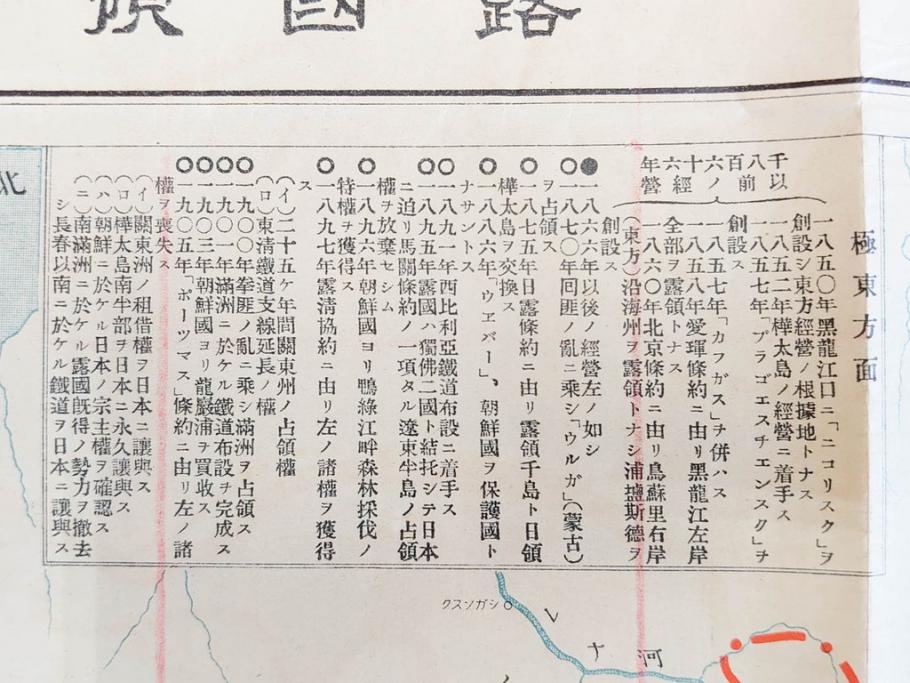 露國領
極東方面
千八百六十年以前ノ經營
一八五〇年黑龍江口ニ「ニコリスク」ヲ
創設シ東方經營ノ根據地トナス
一八五二年樺太島ノ經營ニ着手ス
一八五七年「ブラゴエスチエンスク」ヲ
創設ス
一八五七年「カフガス」ヲ併ハス
一八五八年愛琿條約ニ由リ黑龍江左岸
全部ヲ露領トナス
一八六〇年北京條約ニ由リ烏蘇里右岸
(東方)沿海州ヲ露領トナシ浦鹽斯德ヲ
創設ス
●一八六六年以後ノ經營左ノ如シ
○一八七〇年囘匪ノ亂ニ乘シ「ウルガ」(蒙古)
ヲ占領ス
○一八七五年日露條約ニ由リ露領千島ト日領
樺太島ヲ交換ス
○一八八六年「ウヱバー」、朝鮮國ヲ保護國ト
ナサントス
○一八九一年西比利亞鐵道布設ニ着手ス
○一八九五年露國ハ獨佛二國ト結托シテ日本
ニ迫リ馬關條約ノ一項タル遼東半島ノ占領
權ヲ放棄セシム
○一八九六年朝鮮國ヨリ鴨綠江畔森林採伐ノ
特權ヲ獲得ス
○一八九七年露淸協約ニ由リ左ノ諸權ヲ獲得
ス
(イ)二十五ケ年間關東州ノ占領權
(ロ)東淸鐵道支線延長ノ權
○一九〇〇年拳匪ノ亂ニ乘シ滿洲ヲ占領ス
○一九〇一年滿洲ニ於ケル鐵道布設ヲ完成ス
○一九〇三年朝鮮國ヨリ龍巖浦ヲ買收ス
○一九〇五年「ポーツマス」條約ニ由リ左ノ諸
權ヲ喪失ス
(イ)關東洲ノ租借權ヲ日本ニ讓與ス
(ロ)樺太島南半部ヲ日本ニ永久讓與ス
(ハ)朝鮮ニ於ケル日本ノ宗主權ヲ確認ス
(ニ)南滿洲ニ於ケル露國既得ノ勢力ヲ撤去
シ長春以南ニ於ケル鐵道ヲ日本ニ讓與ス
北
クスソガシ
レ
ナ
河